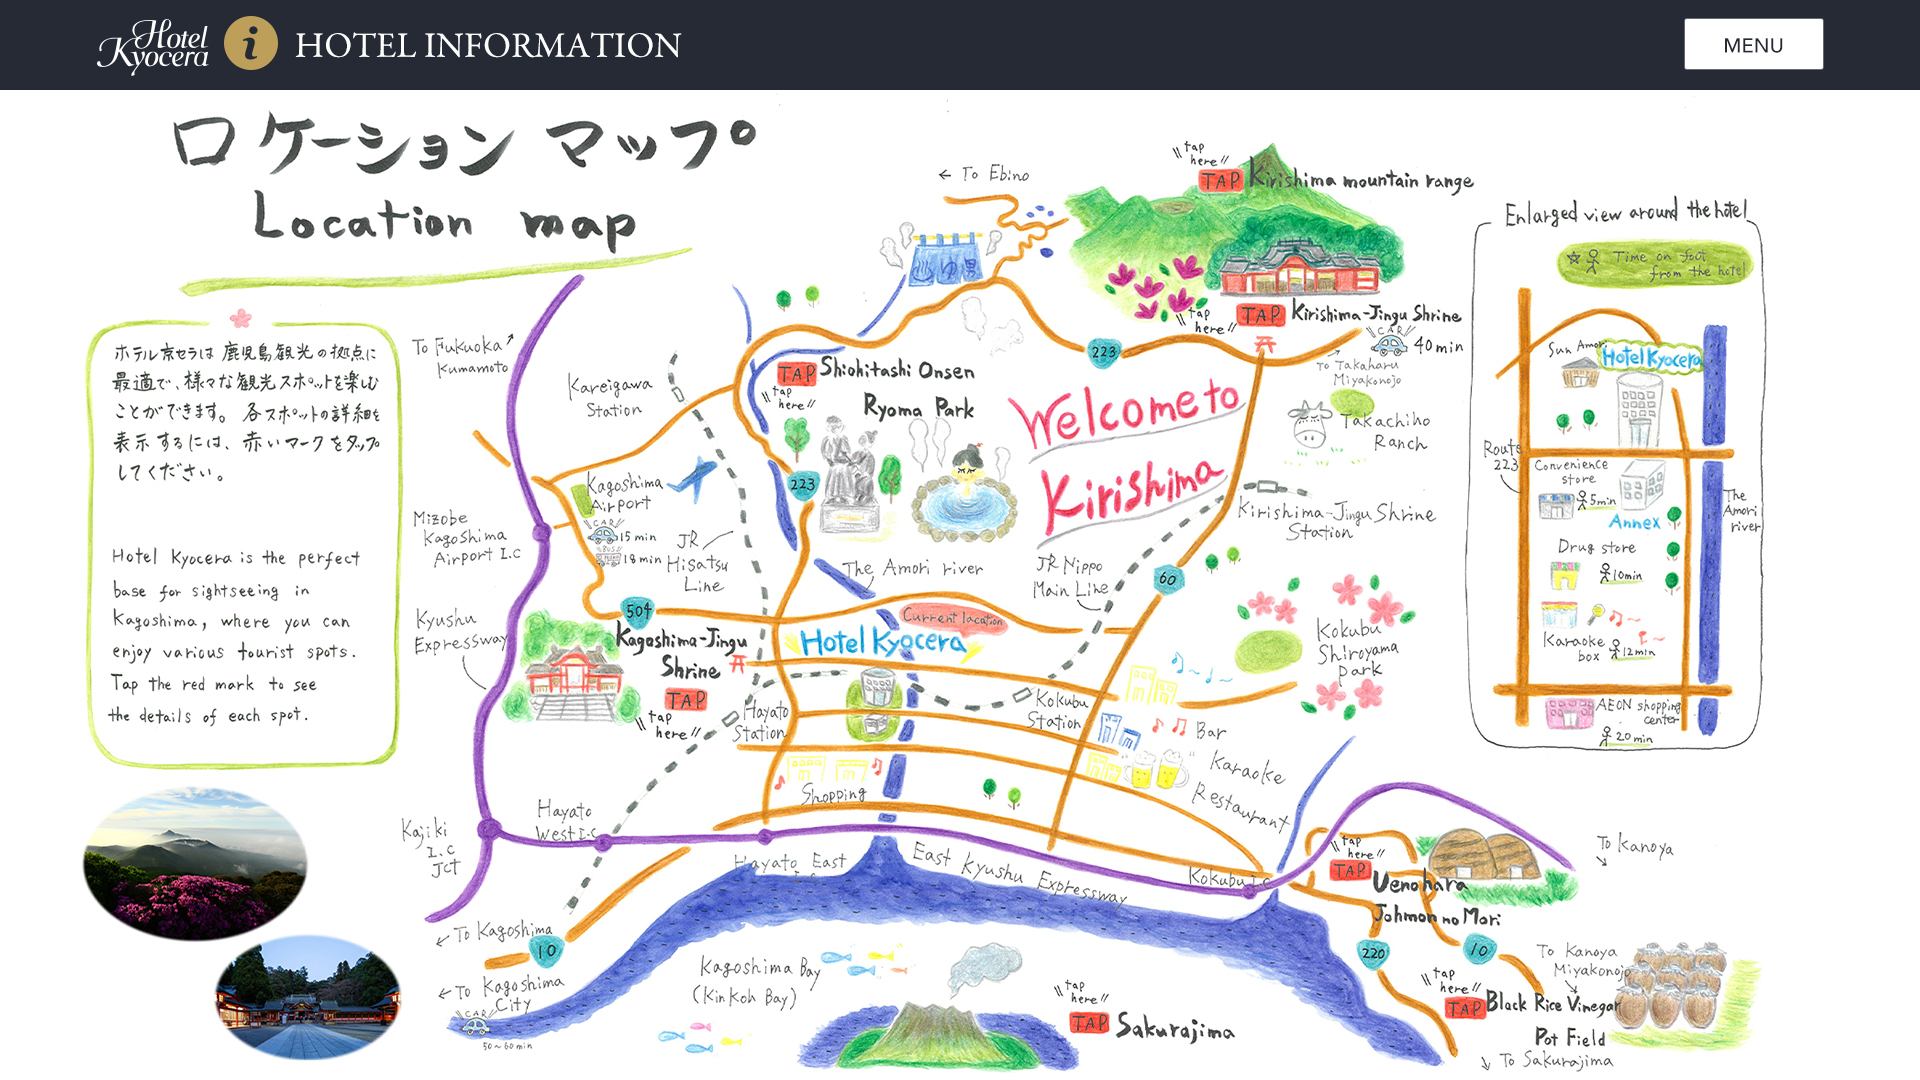 Hotel
Kyocera
i
HOTEL INFORMATION
MENU
ロケーション マップ
Location map
ホテル京セラは鹿児島観光の拠点に
最適で、様々な観光スポットを楽しむ
ことができます。各スポットの詳細を
表示するには、赤いマークをタップ
してください。
Hotel Kyocera is the perfect
base for sightseeing in
Kagoshima, where you can
enjoy various tourist spots.
Tap the red mark to see
the details of each spot.
← To Ebino
ゆ
男
tap
here
TAP
Kirishima mountain range
tap
here
TAP
Kirishima-Jingu Shrine
CAR
40min
To Takaharu
Miyakonojo
223
To Fukuoka
Kumamoto
Kareigawa
Station
TAP
tap
here
Shiohitashi Onsen
Ryoma Park
Welcome to
Kirishima
Takachiho
Ranch
223
Kagoshima
Airport
CAR
15min
BUS
18min
JR
Hisatsu
Line
Mizobe
Kagoshima
Airport I.C
Kirishima-Jingu Shrine
Station
The Amori river
JR Nippo
Main Line
60
504
Kyushu
Expressway
Kagoshima-Jingu
Shrine
TAP
tap
here
Current location
Hotel Kyocera
Kokubu
Shiroyama
park
Hayato
Station
Kokubu
Station
Bar
Karaoke
Restaurant
Shopping
Hayato
West I.C
Kajiki
I.C
JCT
Hayato East
I.C
East Kyushu Expressway
Kokubu I.C
tap
here
TAP
Uenohara
Johmon no Mori
To Kanoya
← To Kagoshima
10
← To Kagoshima
City
CAR
50~60min
Kagoshima Bay
(Kinkoh Bay)
tap
here
TAP
Sakurajima
220
10
To Kanoya
Miyakonojo
tap
here
TAP
Black Rice Vinegar
Pot Field
To Sakurajima
Enlarged view around the hotel
Time on foot
from the hotel
Sun Amori
Hotel Kyocera
Route
223
Convenience
store
5min
Annex
The
Amori
river
Drug store
10min
Karaoke
box
12min
AEON shopping
center
20min